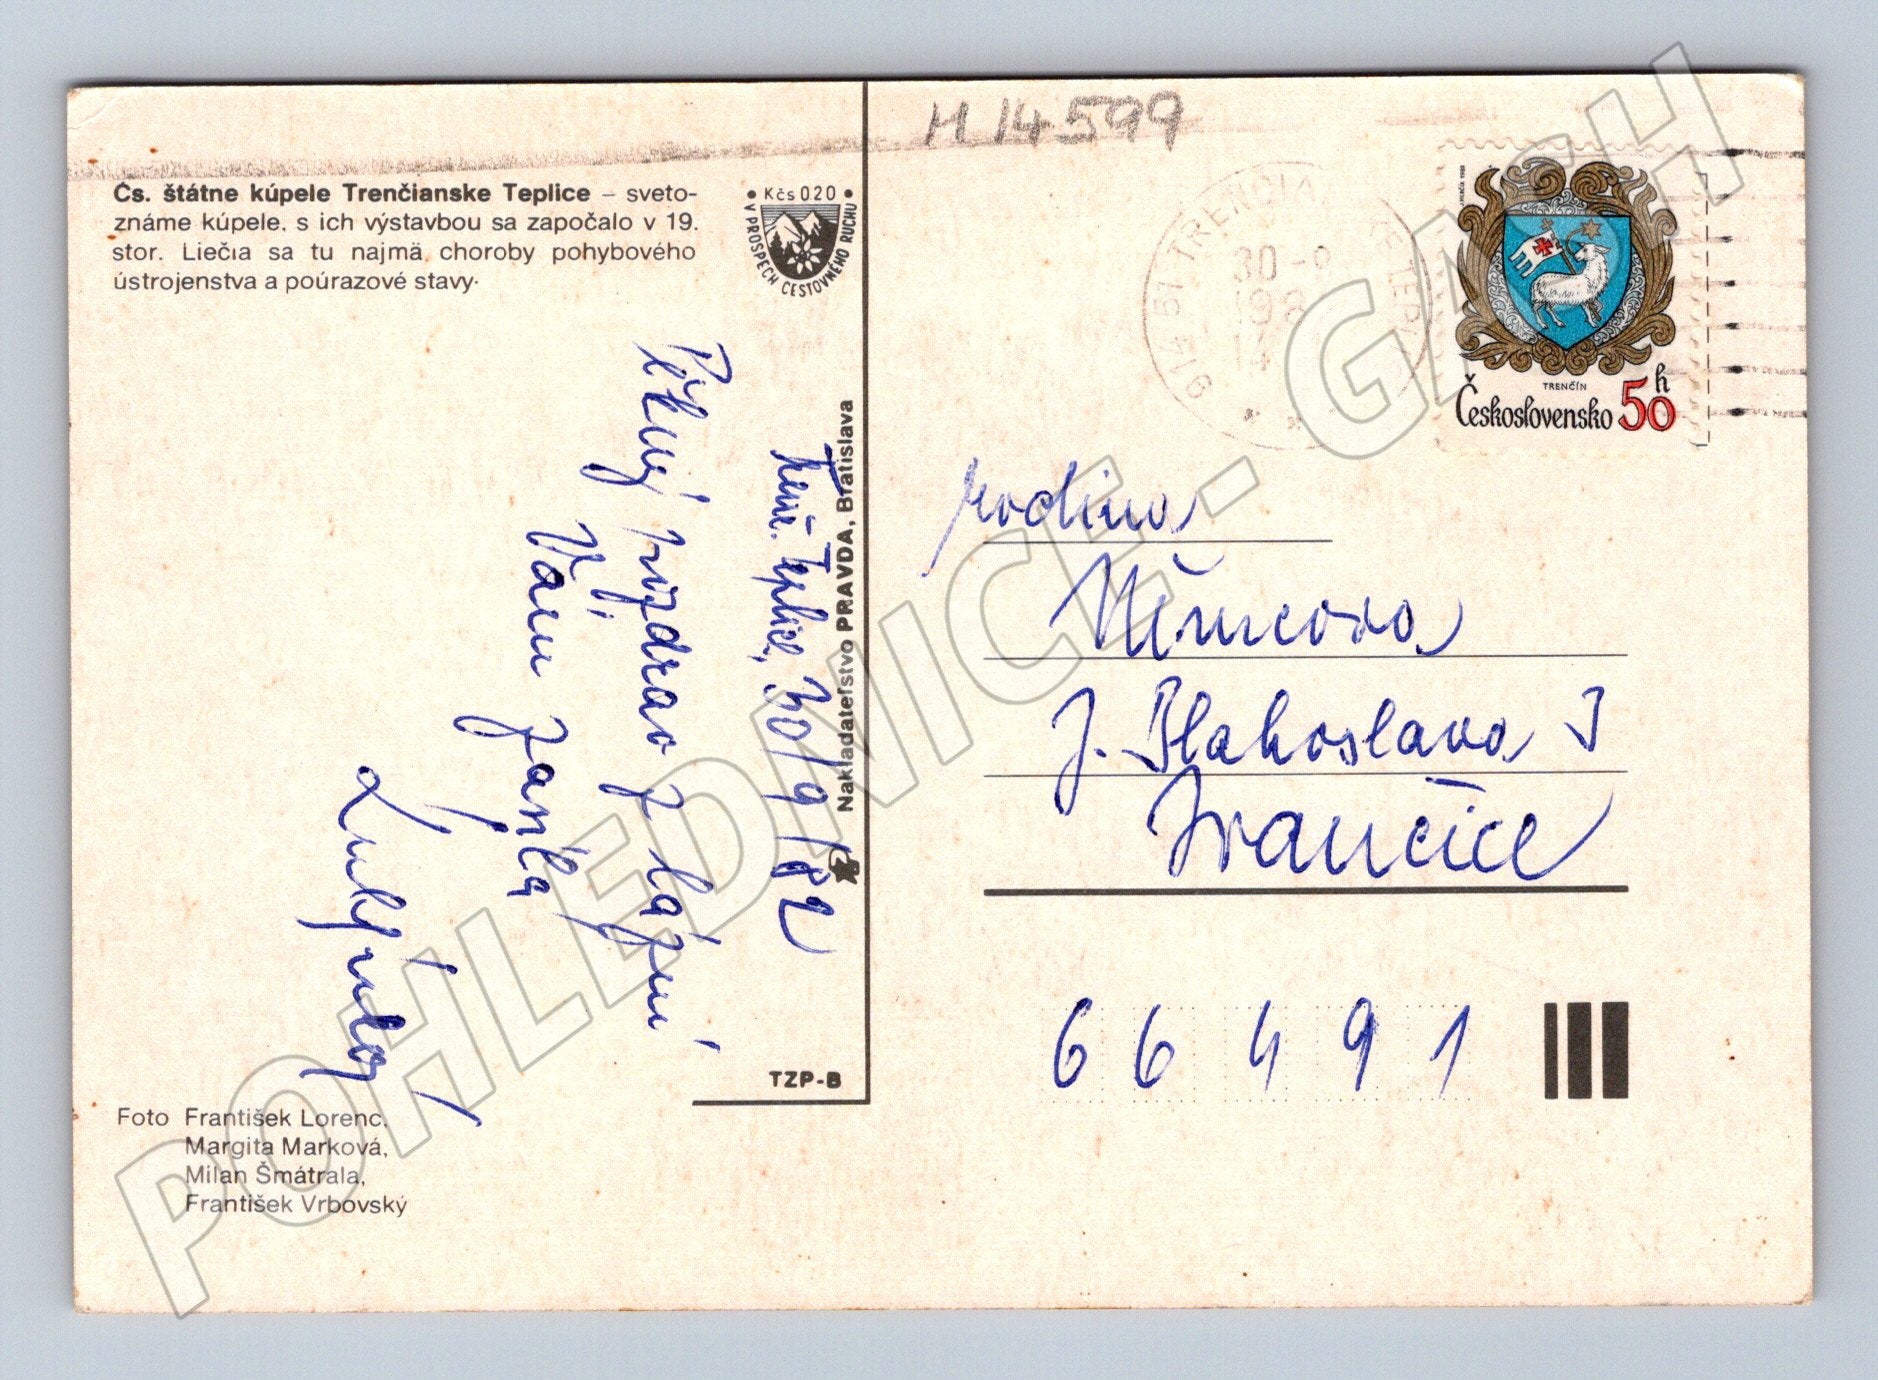 H 14599
Čs. štátne kúpele Trenčianske Teplice – sveto-
známe kúpele, s ich výstavbou sa započalo v 19.
stor. Liečia sa tu najmä choroby pohybového
ústrojenstva a poúrazové stavy.
• Kčs 0.20 •
V PROSPECH CESTOVNÉHO RUCHU
Nakladateľstvo PRAVDA, Bratislava
TZP-B
Foto František Lorenc,
Margita Marková,
Milan Šmátrala,
František Vrbovský
Trenč. Teplice, 30/9/82
Pěkný pozdrav z lázní
Vám zasílá
914 51 TRENČIA
30 -9
198
14
TRENČÍN
Československo 50 h
rodina
Němcova
J. Blahoslava
Ivančice
66491
POHLEDNICE - GMCH